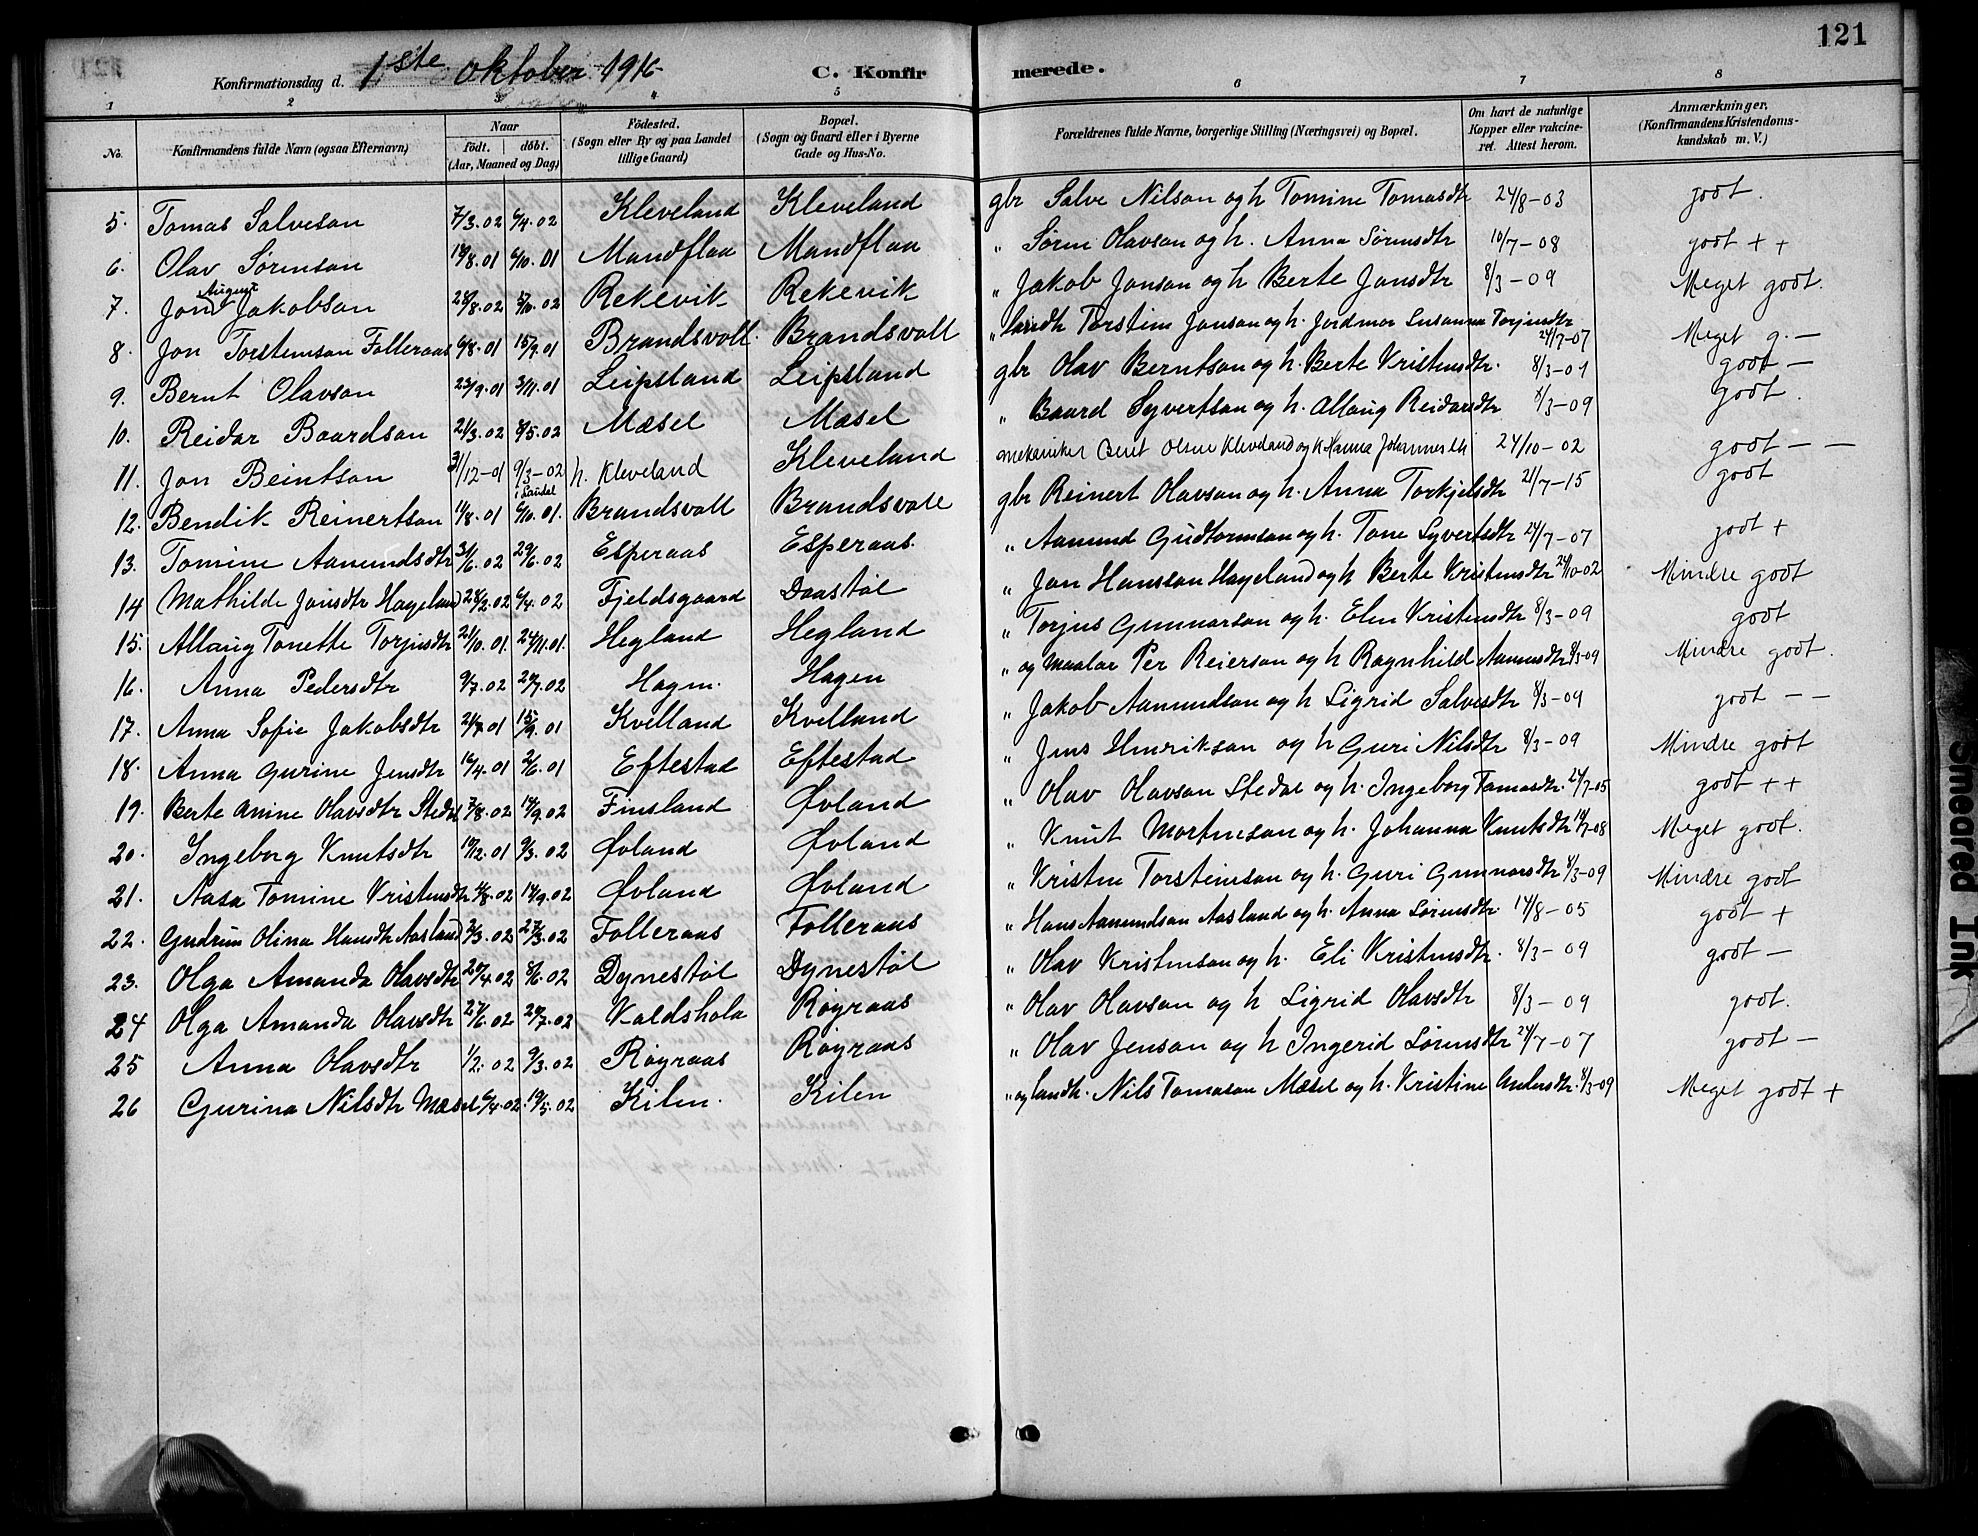 121
Konfirmationsdag d. 1ste oktober 1916
C. Konfirmerede.
1 2 3 4 5 6 7 8
No.
Konfirmandens fulde Navn (ogsaa Efternavn)
Naar
født. døbt.
(Aar, Maaned og Dag)
Födested.
(Sogn eller By og paa Landet
tillige Gaard)
Bopæl.
(Sogn og Gaard eller i Byerne
Gade og Hus-No.
Forældrenes fulde Navne, borgerlige Stilling (Næringsvei) og Bopæl.
Om havt de naturlige
Kopper eller vakcine-
ret. Attest herom.
Anmærkninger,
(Konfirmandens Kristendoms-
kundskab m. V.)
5. Tomas Salveson 7/3.02 6/4.02 Kleveland Kleveland gbr Salve Nilson og h Tomine Tomasdtr 24/8-03 godt.
6. Olav Sørenson 19/8.01 6/10.01 Mandflaa Mandflaa " Søren Olavson og h. Anna Sørensdtr 10/7-08 godt + +
7. Jon August Jakobson 28/8.02 5/10.02 Rekevik Rekevik " Jakob Jonson og h Berte Jonsdtr 8/3-09 Meget godt.
8. Jon Torstenson Folleraas 6/8.01 15/9.01 Brandsvoll Brandsvoll " landh Torstein Jonson og h. Jordmor Susanna Torjusdtr 24/7-07 Meget g. -
9. Bernt Olavson 23/9.01 3/11.01 Leipsland Leipsland gbr Olav Berntson og h. Berte Kristensdtr. 8/3-09 godt -
10. Reidar Baardson 21/3.02 8/5.02 Mæsel Mæsel " Baard Syvertson og h. Allaug Reidarsdtr 8/3-09 godt.
11. Jon Beintson 31/12-01 9/3-02 i Laudal h. Kleveland Kleveland mekaniker Beint Olsen Kleveland og h Hanna Johannesdtr 24/10-02 godt - -
12. Bendik Reinertson 11/8.01 6/10.01. Brandsvoll Brandsvoll gbr Reinert Olavson og h. Anna Torkjelsdtr 21/7-15 godt
13. Tomine Aanundsdtr 31/6.02 29/6.02 Esperaas Esperaas. " Aanund Gudtormson og h. Tone Syvertsdtr 24/7-07 godt +
14 Mathilde Jonsdtr Hageland 28/2.02 6/4.02 Fjeldsgaard Daastøl " Jon Hansson Hageland og h Berte Kristensdtr 24/10-02 Mindre godt
15. Allaug Tonette Torjusdtr 21/10.01. 24/11.01. Hegland Hegland " Torjus Gunnarson og h. Elen Kristensdtr 8/3-09 godt
16. Anna Pedersdtr 9/7.02 20/7.02 Hagen. Hagen " og Maalar Per Reierson og h Ragnhild Aanensdtr 8/3-09 Mindre godt.
17. Anna Sofie Jakobsdtr 21/7.01 15/9.01 Kvelland Kvelland " Jakob Aanundson og h Sigrid Salvesdtr 8/3-09 godt - -
18. Anna Gurine Jensdtr 16/4.01 2/6.01 Eftestad Eftestad " Jens Henrikson og h Guri Nilsdtr 8/3-09 Mindre godt
19. Berte Amine Olavsdtr Stedal 7/8.02 14/9.02 Finsland Øvland " Olav Olavson Stedal og h. Ingeborg Tomasdtr. 24/7-05 godt + +
20. Ingeborg Knutsdtr 19/12.01 9/3.02 Øvland Øvland " Knut Mortenson og h. Johanna Knutsdtr 14/7-08 Meget godt.
21. Aasa Tomine Kristensdtr 4/8.02 14/9.02 Øvland Øvland " Kristen Torsteinson og h. Guri Gunnarsdtr 8/3-09 Mindre godt
22. Gudrun Olina Hansdtr Aasland 2/3.02 27/3.02 Folleraas Folleraas " Hans Aanundson Aasland og h. Anna Sørensdtr 14/8-05 godt +
23. Olga Amanda Olavsdtr 20/4.02 8/6.02 Dynestøl Dynestøl " Olav Kristenson og h. Eli Kristensdtr. 8/3-09 godt -
24 Olga Amanda Olavsdtr 27/6.02 20/7.02 Valdshola Røyraas " Olav Olavson og h Sigrid Olavsdtr 8/3-09 godt.
25 Anna Olavsdtr 1/2.02 9/3.02 Røyraas Røyraas " Olav Jenson og h Ingerid Sørensdtr 24/7-07 godt -
26 Gurina Nilsdtr Mæsel 6/4.02. 19/5.02 Kilen. Kilen " og landh. Nils Tomason Mæsel og h. Kristine Andersdtr. 8/3-09 Meget godt +
Smeared Ink